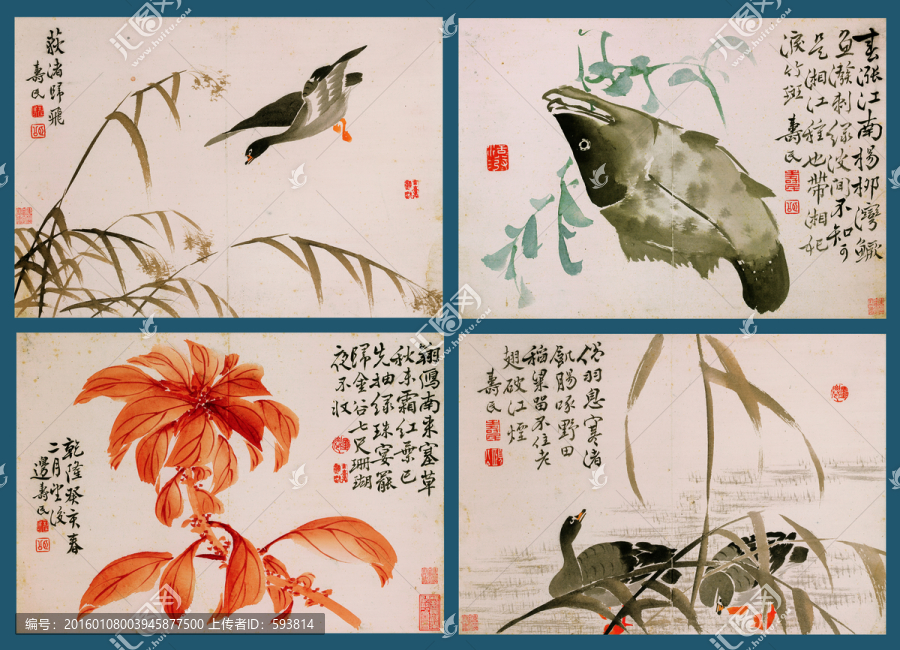 荻渚歸飛
壽民
春漲江南楊柳灣鱖
魚潑剌綠波間不知可
是湘江種也帶湘妃
淚竹斑 壽民
鴻南來塞草
秋未霜紅葉已
先抽綠珠宴罷
歸金谷七尺珊瑚
夜不收
乾隆癸亥春
二月望後
邊壽民
倦羽息寒渚
飢腸啄野田
稻粱留不住老
翅破江煙
壽民
编号：20160108003945877500 上传者ID：593814
汇图网
www.huitu.com